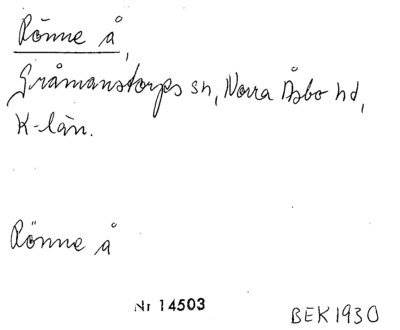 Rönne å,
Gråmanstorps sn, Norra Åsbo hd,
K-län.
Rönne å
Nr 14503
BEK1930